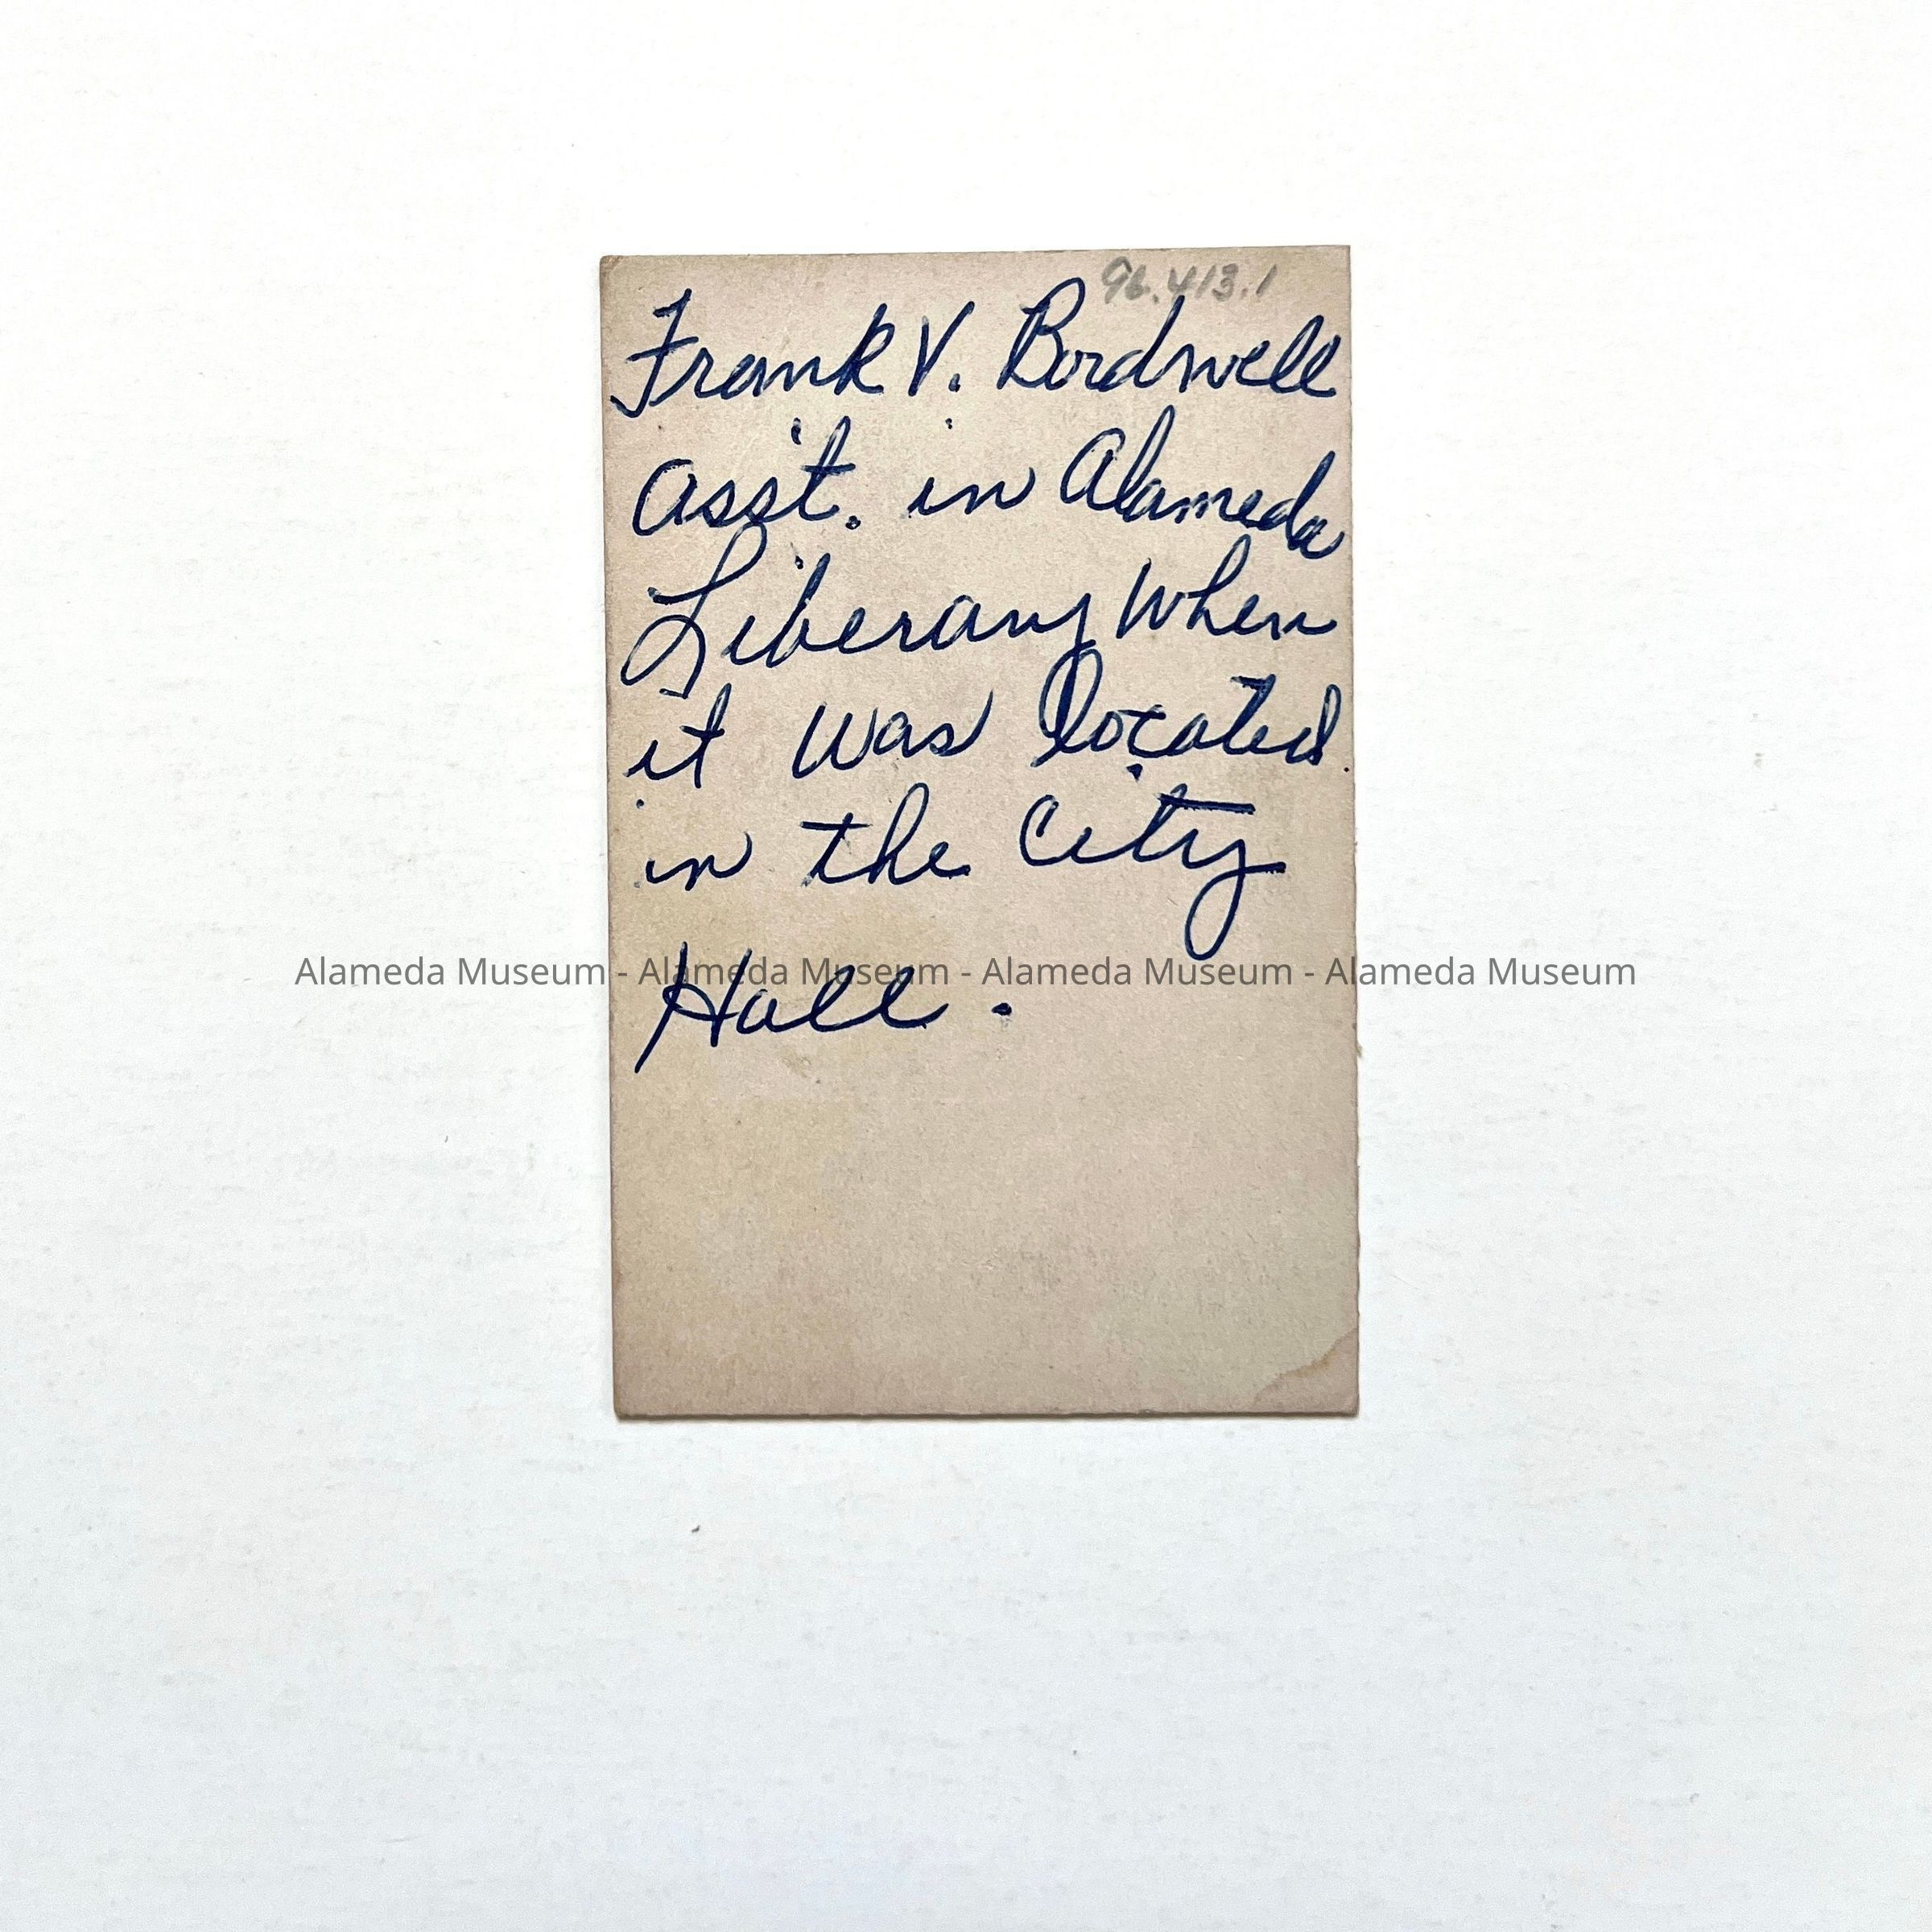 96.413.1
Frank V. Bordwell
Ass't. in Alameda
Liberary When
it was located
in the City
Alameda Museum - Alameda Museum - Alameda Museum - Alameda Museum
Hall.